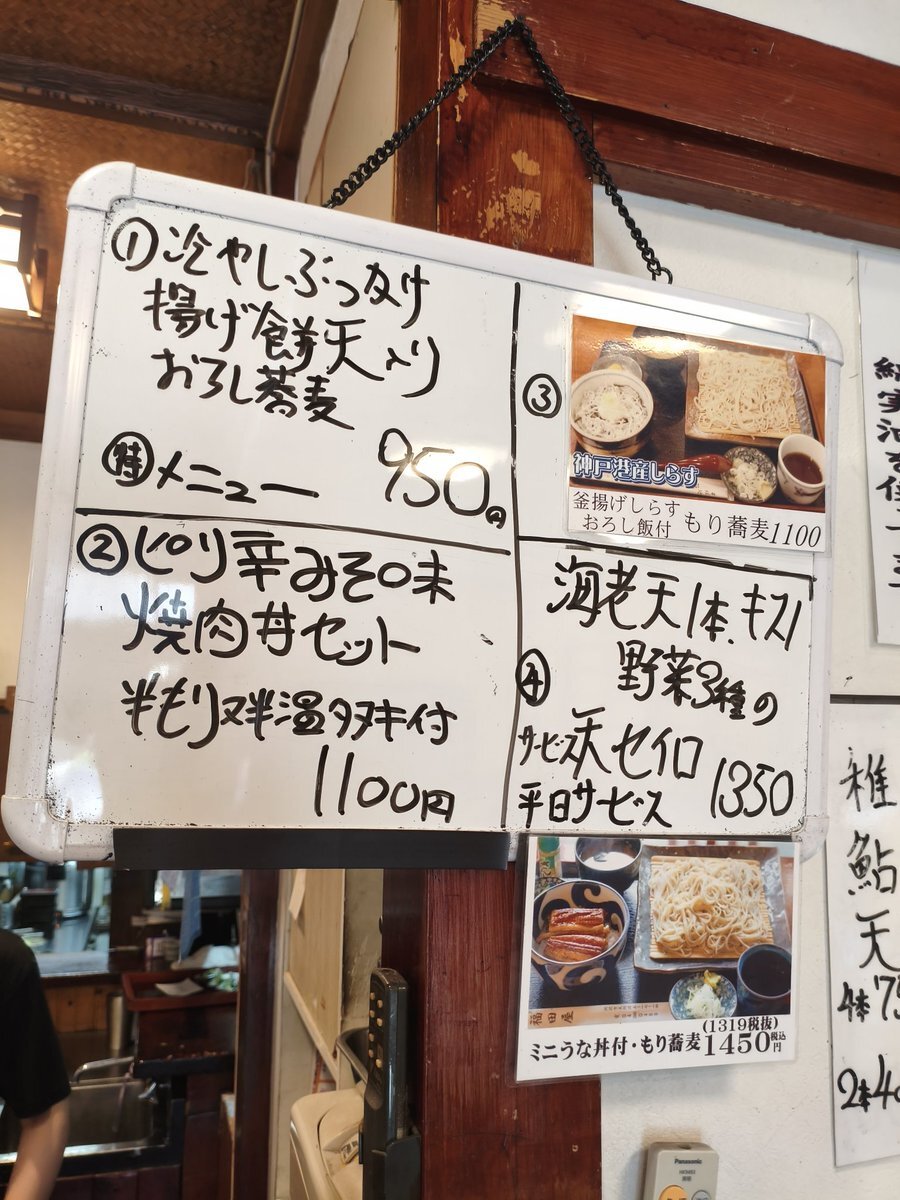 ①冷やしぶっかけ
揚げ餅天入り
おろし蕎麦
㊕メニュー 950円
②ピリ辛みそ味
焼肉丼セット
半もり又半温タヌキ付
1100円
③
神戸港産しらす
釜揚げしらす
おろし飯付 もり蕎麦1100
海老天1本、キス1
④ 野菜3種の
サービス天セイロ 1350
平日サービス
福田屋
(1319税抜)
ミニうな丼付・もり蕎麦1450税込円
稚鮎天
4本
2本
Panasonic